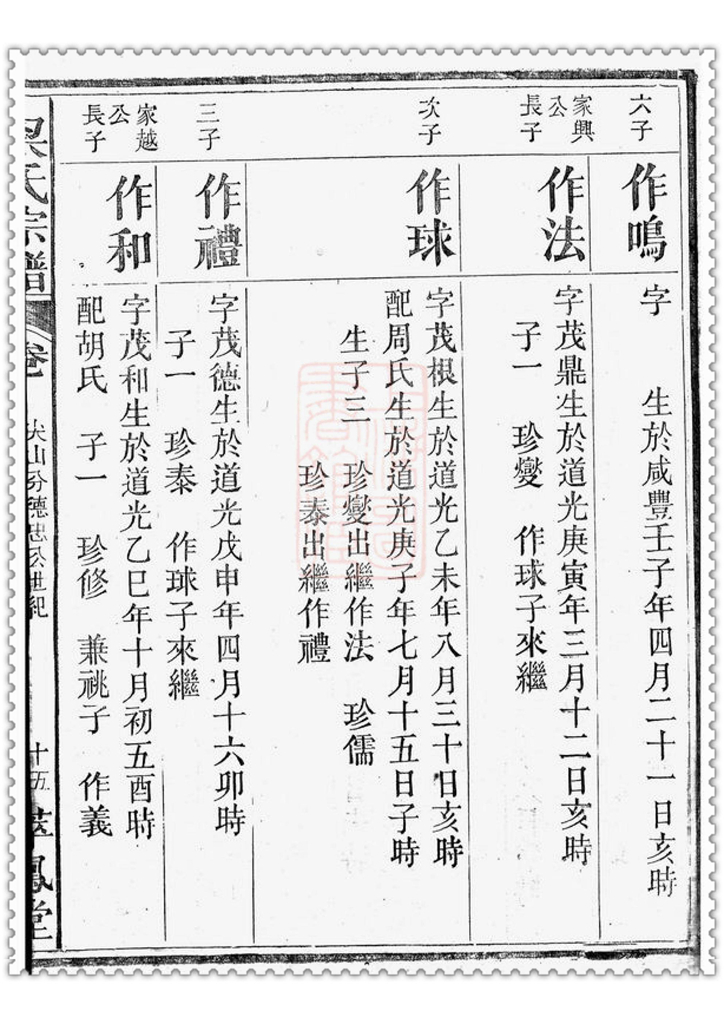 六子
作鳴
字　生於咸豐壬子年四月二十一日亥時
家興公長子
作法
字茂鼎生於道光庚寅年三月十二日亥時
子一　珍燮　作球子來繼
次子
作球
字茂根生於道光乙未年八月三十日亥時
配周氏生於道光庚子年七月十五日子時
生子三　珍燮出繼作法　珍儒
珍泰出繼作禮
三子
作禮
字茂德生於道光戊申年四月十六卯時
子一　珍泰　作球子來繼
家越公長子
作和
字茂和生於道光乙巳年十月初五酉時
配胡氏　子一　珍修　兼祧子　作義
氏宗譜
卷
尖山分德忠公世紀
十五
鳳堂